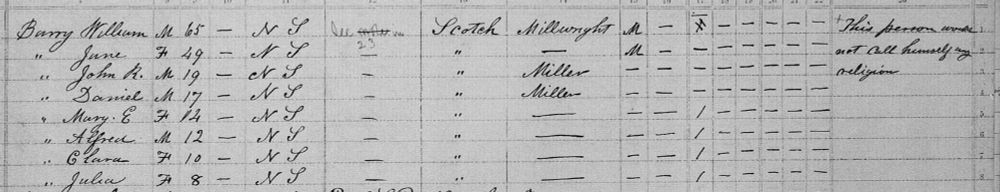 Barry William M 65 — N S Scotch Millwright M — X — — — — — This person would
" Jane F 49 — N S " — M — — — — — — — not call himself any
" John R. M 19 — N S — " Miller — — — — — — — — religion
" Daniel M 17 — N S " Miller — — — — — — — —
" Mary. E F 14 — N S — " — — — 1 — — — — —
" Alfred M 12 — N S — " — — — 1 — — — — —
" Clara F 10 — N S — " — — — 1 — — — — —
" Julia F 8 — N S — " — — — 1 — — — — —